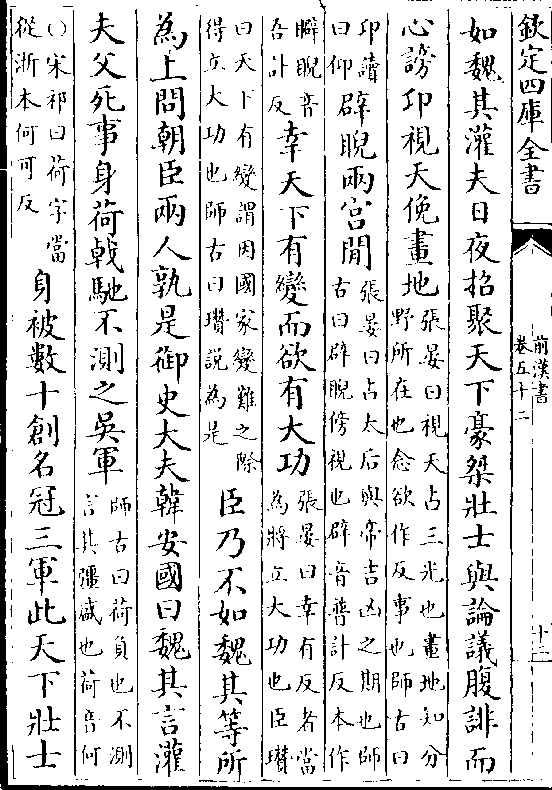 欽定四庫全書
前漢書
卷五十二
十三
如魏其灌夫日夜招聚天下豪桀壯士與論議腹誹而
心謗卬視天俛畫地張晏曰視天占三光也畫地知分野所在也念欲作反事也師古曰
卬讀曰仰辟睨兩宮閒張晏曰占太后與帝吉凶之期也師古曰辟睨傍視也辟音普計反本作
睥睨音吾計反幸天下有變而欲有大功張晏曰幸有反者當為將立大功也臣瓚
曰天下有變謂因國家變難之際得立大功也師古曰瓚說為是臣乃不如魏其等所
為上問朝臣兩人孰是御史大夫韓安國曰魏其言灌
夫父死事身荷戟馳不測之吳軍師古曰荷負也不測言其彊盛也荷音何
○宋祁曰荷字當從浙本何可反身被數十創名冠三軍此天下壯士